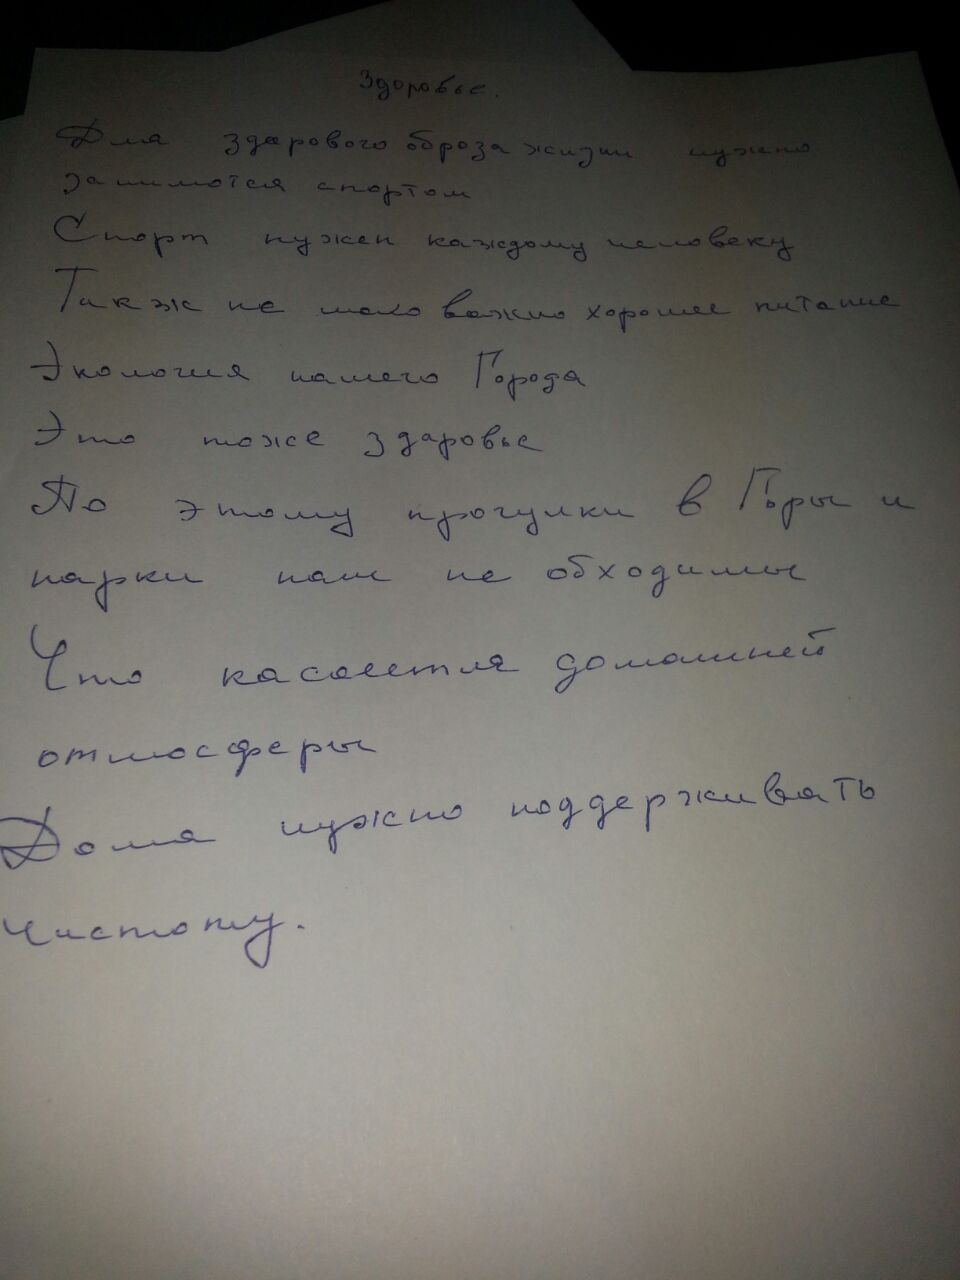 Здоровье.
Для здарового оброза жизни нужно
заниматся спортом
Спорт нужен каждому человеку
Так ж не мало важно хорошее питание
Экология нашего Города
Это тоже здаровье
По этому прогулки в Горы и
парки нам не обходимы
Что касоется домашней
отмосферы
Дома нужно поддерживать
чистоту.